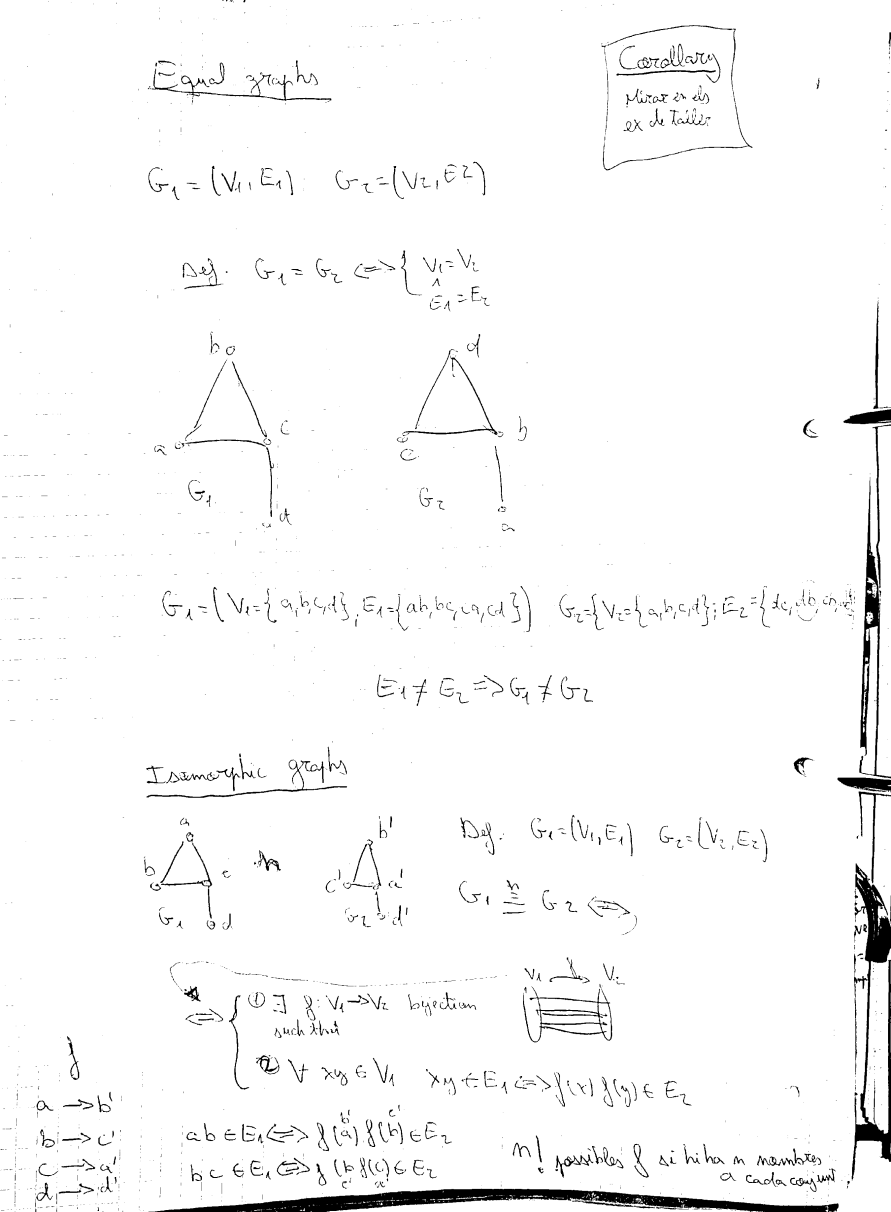 Equal graphs
Corollary
Mirar en els
ex de Taller
G₁=(V₁,E₁) G₂=(V2,E2)
Def. G₁=G₂ <=> { V₁=V₂
^
E₁=E₂
b d
a c c b
G₁ G₂
d a
G₁=(V₁={a,b,c,d},E₁={ab,bc,ca,cd}) G₂={V₂={a,b,c,d};E₂={dc,db,
E₁≠E₂=>G₁≠G₂
Isomorphic graphs
a b' Def. G₁=(V₁,E₁) G₂=(V₂,E₂)
b c c' a'
G₁ d G₂ d' G₁ ≅ G₂ <=>
V₁ f V₂
<=> { ① ∃ f:V₁→V₂ bijection
such that
② ∀ xy ∈ V₁ xy ∈ E₁ <=> f(x) f(y) ∈ E₂
f
a → b'
b → c'
c → a'
d → d'
b' c'
ab ∈ E₁ <=> f(a) f(b) ∈ E₂
bc ∈ E₁ <=> f(b f(c) ∈ E₂
c' a'
n! possibles f si hi ha n nombres
a cada conjunt